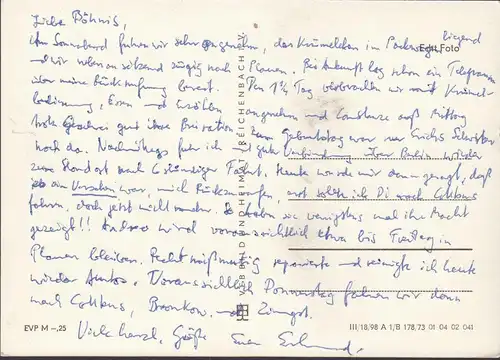 Liebe Böhnis,
Am Sonnabend fuhren wir sehr angenehm, das Krümelchen im Packwagen liegend
und wir nebenan sitzend zügig nach Plauen. Bei Ankunft lag schon ein Telegramm
über meine Rückrufung bereit. Den 1¼ Tag verbrachten wir mit Krümel-
bedienung, Essen und Erzählen angenehm und
trotz Geschrei gut ihre Zum Geburtstag war nur Erichs Schwester
noch da. Nachmittags fuhr ich gute Verbindung über Berlin wieder
zum Standort nach 6 stündiger Fahrt. Heute wurde mir dann gesagt, daß
ein Versehen war, mich zurückzurufen, erst sollte ich Di nach Cottbus
fahren, doch jetzt nicht mehr. So haben sie wenigstens mal ihre Macht
gezeigt!! Andrea wird voraussichtlich etwa bis Freitag in
Plauen bleiben. Recht mißmutig repariere und reinige ich heute
wieder Autos. Voraussichtlich Donnerstag fahren wir dann
nach Cottbus, Bronkow und
Viele herzl. Grüße Euer
Echt Foto
VEB BILD UND HEIMAT REICHENBACH i. V.
EVP M -,25
III/18/98 A 1/B 178/73 01 04 02 041